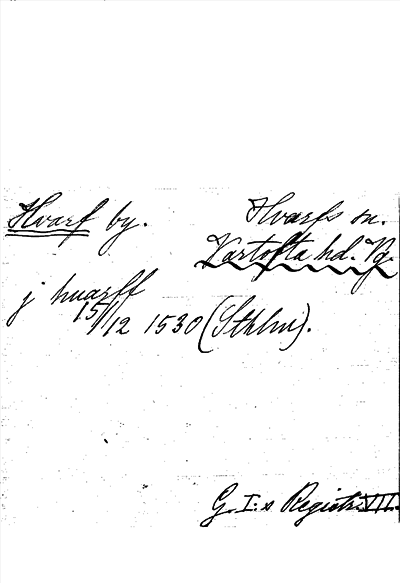 Hvarf by. Hvarfs sn.
Vartofta hd. Vg.
j huarff
15/12 1530 (Sthlm).
G. I:s Registr. VII.